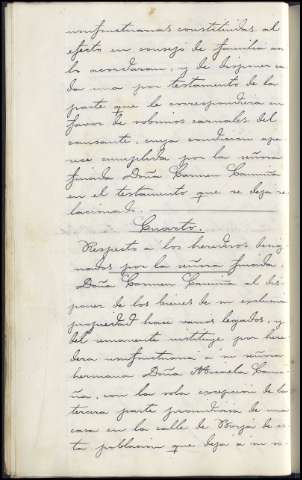 usufructuarias constituidas al
efecto en consejo de familia así
lo acordaran, y de disponer ca
da una por testamento de la
parte que le correspondiera en
favor de sobrinos carnales del
causante, cuya condicion apa
rece cumplida por la señora
finada Doña Carmen
en el testamento que se deja re
lacionado.
Cuarto.
Respecto a los herederos desig
nados por la señora finada,
Doña Carmen al dis
poner de los bienes de su exclusiva
propiedad hace varios legados, y
del remanente instituye por here
dera usufructuaria a su señora
hermana Doña Manuela
con la sola excepcion de la
tercera parte proindiviso de una
casa en la calle de Borja de es
ta poblacion que deja a su so